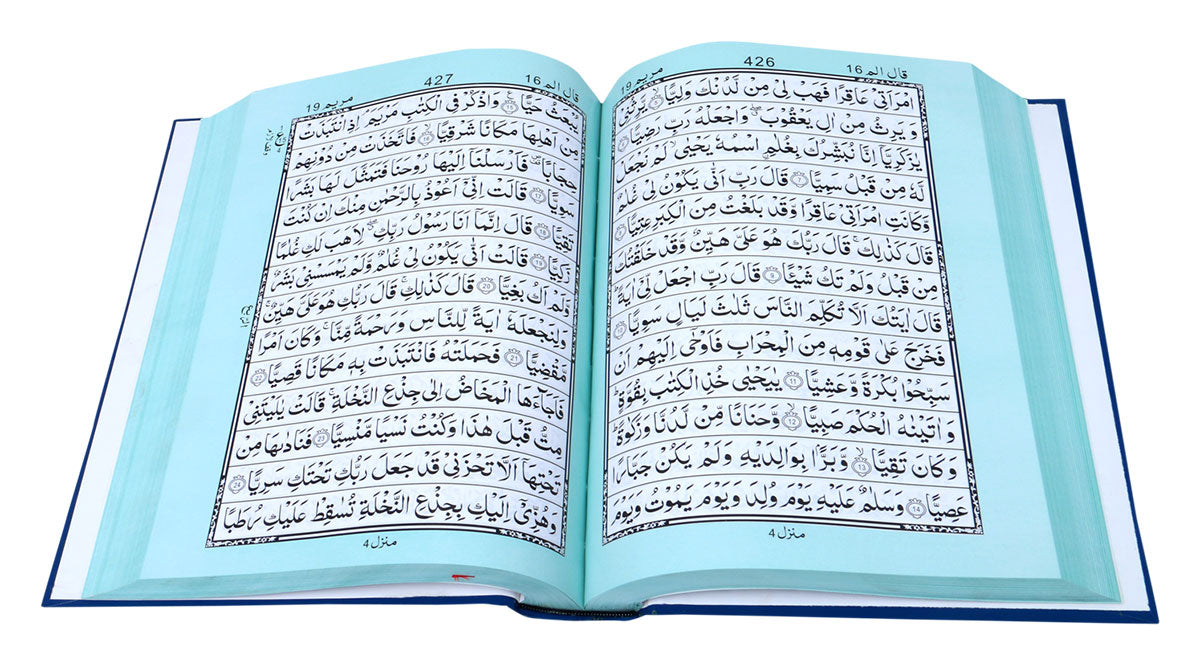 قال الم 16
426
مريم 19
امْرَاَتِیْ عَاقِرًا فَهَبْ لِیْ مِنْ لَّدُنْكَ وَلِیًّا ۙ5 یَّرِثُنِیْ
وَ یَرِثُ مِنْ اٰلِ یَعْقُوْبَ ۖۗ وَاجْعَلْهُ رَبِّ رَضِیًّا 6
یٰزَكَرِیَّاۤ اِنَّا نُبَشِّرُكَ بِغُلٰمِ ِ۟اسْمُهٗ یَحْیٰی ۙ لَمْ نَجْعَلْ
لَّهٗ مِنْ قَبْلُ سَمِیًّا 7 قَالَ رَبِّ اَنّٰی یَكُوْنُ لِیْ غُلٰمٌ
وَّكَانَتِ امْرَاَتِیْ عَاقِرًا وَّقَدْ بَلَغْتُ مِنَ الْكِبَرِ عِتِیًّا 8
قَالَ كَذٰلِكَ ۚ قَالَ رَبُّكَ هُوَ عَلَیَّ هَیِّنٌ وَّقَدْ خَلَقْتُكَ
مِنْ قَبْلُ وَلَمْ تَكُ شَیْـًٔا 9 قَالَ رَبِّ اجْعَلْ لِّیْۤ اٰیَةً ؕ
قَالَ اٰیَتُكَ اَلَّا تُكَلِّمَ النَّاسَ ثَلٰثَ لَیَالٍ سَوِیًّا 10
فَخَرَجَ عَلٰی قَوْمِهٖ مِنَ الْمِحْرَابِ فَاَوْحٰۤی اِلَیْهِمْ اَنْ
سَبِّحُوْا بُكْرَةً وَّعَشِیًّا 11 یٰیَحْیٰی خُذِ الْكِتٰبَ بِقُوَّةٍ ؕ
وَ اٰتَیْنٰهُ الْحُكْمَ صَبِیًّا ۙ12 وَّحَنَانًا مِّنْ لَّدُنَّا وَزَكٰوةً ؕ
وَ كَانَ تَقِیًّا ۙ13 وَّبَرًّۢا بِوَالِدَیْهِ وَلَمْ یَكُنْ جَبَّارًا
عَصِیًّا 14 وَسَلٰمٌ عَلَیْهِ یَوْمَ وُلِدَ وَیَوْمَ یَمُوْتُ وَیَوْمَ
منزل 4
قال الم 16
427
مريم 19
یُبْعَثُ حَیًّا 15 وَاذْكُرْ فِی الْكِتٰبِ مَرْیَمَ ۘ اِذِ انْتَبَذَتْ
مِنْ اَهْلِهَا مَكَانًا شَرْقِیًّا ۙ16 فَاتَّخَذَتْ مِنْ دُوْنِهِمْ
حِجَابًا ۪۫ فَاَرْسَلْنَاۤ اِلَیْهَا رُوْحَنَا فَتَمَثَّلَ لَهَا بَشَرًا
سَوِیًّا 17 قَالَتْ اِنِّیْۤ اَعُوْذُ بِالرَّحْمٰنِ مِنْكَ اِنْ كُنْتَ
تَقِیًّا 18 قَالَ اِنَّمَاۤ اَنَا رَسُوْلُ رَبِّكِ ۖۗ لِاَهَبَ لَكِ غُلٰمًا
زَكِیًّا 19 قَالَتْ اَنّٰی یَكُوْنُ لِیْ غُلٰمٌ وَّلَمْ یَمْسَسْنِیْ بَشَرٌ
وَّلَمْ اَكُ بَغِیًّا 20 قَالَ كَذٰلِكِ ۚ قَالَ رَبُّكِ هُوَ عَلَیَّ هَیِّنٌ ۚ
وَلِنَجْعَلَهٗۤ اٰیَةً لِّلنَّاسِ وَرَحْمَةً مِّنَّا ۚ وَكَانَ اَمْرًا
مَّقْضِیًّا 21 فَحَمَلَتْهُ فَانْتَبَذَتْ بِهٖ مَكَانًا قَصِیًّا 22
فَاَجَآءَهَا الْمَخَاضُ اِلٰی جِذْعِ النَّخْلَةِ ۚ قَالَتْ یٰلَیْتَنِیْ
مِتُّ قَبْلَ هٰذَا وَكُنْتُ نَسْیًا مَّنْسِیًّا 23 فَنَادٰىهَا مِنْ
تَحْتِهَاۤ اَلَّا تَحْزَنِیْ قَدْ جَعَلَ رَبُّكِ تَحْتَكِ سَرِیًّا 24
وَهُزِّیْۤ اِلَیْكِ بِجِذْعِ النَّخْلَةِ تُسٰقِطْ عَلَیْكِ رُطَبًا
منزل 4